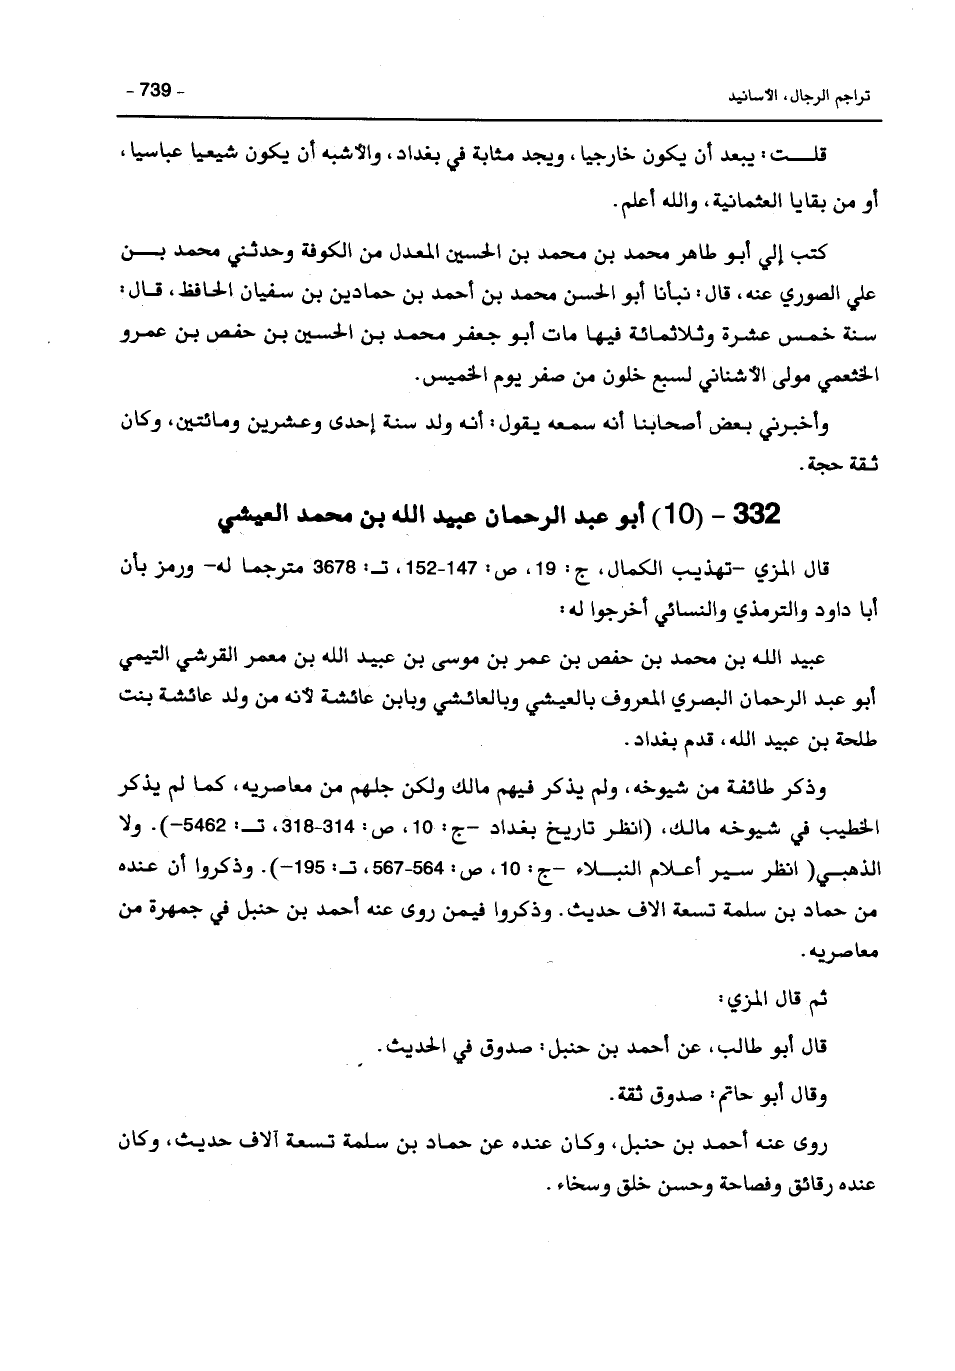 تراجم الرجال، الأسانيد
- 739 -
قلـــت: يبعد أن يكون خارجيا، ويجد مثابة في بغداد، والأشبه أن يكون شيعيا عباسيا،
أو من بقايا العثمانية، والله أعلم.
كتب إلي أبو طاهر محمد بن محمد بن الحسين المعدل من الكوفة وحدثني محمد بــن
علي الصوري عنه، قال: نبأنا أبو الحسن محمد بن أحمد بن حمادين بن سفيان الحافظ، قـال:
سنة خمـس عشـرة وثـلاثمـائـة فيهـا مات أبـو جعفـر محمـد بـن الحسيـن بـن حفـص بـن عمـرو
الخثعمي مولى الأشناني لسبع خلون من صفر يوم الخميس.
وأخبرني بعض أصحابنا أنه سمعه يقول: أنه ولد سنة إحدى وعشرين ومائتين، وكان
ثقة حجة.
332 - (10) أبو عبد الرحمان عبيد الله بن محمد العيشي
قال المزي -تهذيب الكمال، ج: 19، ص: 147-152، تـ: 3678 مترجما له- ورمز بأن
أبا داود والترمذي والنسائي أخرجوا له:
عبيد الله بن محمد بن حفص بن عمر بن موسى بن عبيد الله بن معمر القرشي التيمي
أبو عبد الرحمان البصري المعروف بالعيشي وبالعائشي وبابن عائشة لأنه من ولد عائشة بنت
طلحة بن عبيد الله، قدم بغداد.
وذكر طائفة من شيوخه، ولم يذكر فيهم مالك ولكن جلهم من معاصريه، كما لم يذكر
الخطيب في شيوخه مالك، (انظر تاريخ بغداد -ج: 10، ص: 314-318، تـ: 5462-). ولا
الذهبـي( انظر سـير أعـلام النبـلاء -ج: 10، ص: 564-567، تـ: 195-). وذكروا أن عنده
من حماد بن سلمة تسعة الاف حديث. وذكروا فيمن روى عنه أحمد بن حنبل في جمهرة من
معاصريه.
ثم قال المزي:
قال أبو طالب، عن أحمد بن حنبل: صدوق في الحديث.
وقال أبو حاتم: صدوق ثقة.
روى عنه أحمد بن حنبل، وكان عنده عن حماد بن سلمة تسعة آلاف حديث، وكان
عنده رقائق وفصاحة وحسن خلق وسخاء.